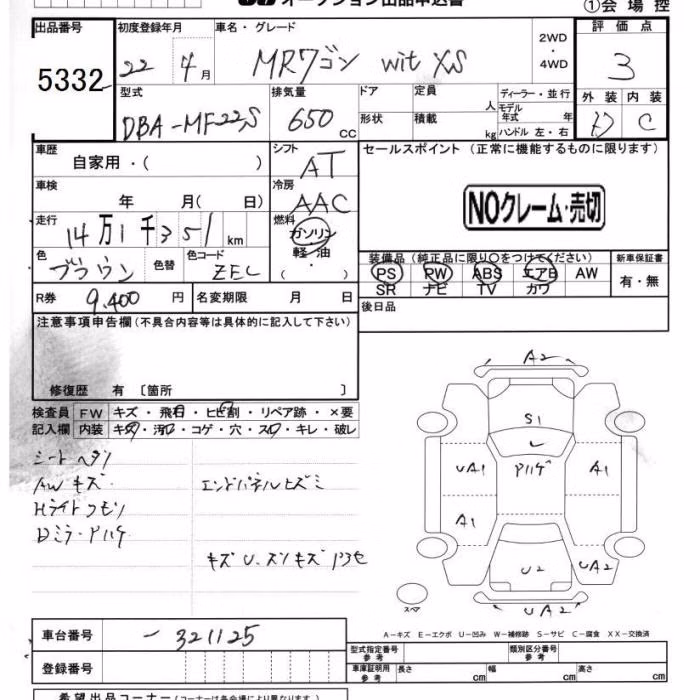 オークション出品申込書 ①会場控
出品番号 初度登録年月 車名・グレード 2WD・4WD 評価点
5332 22 4月 MRワゴン wit XS 3
型式 排気量 ドア 定員 人 ディーラー・並行 外装 内装
DBA-MF22S 650 cc 形状 積載 kg モデル年式 年 ハンドル 左・右 D C
車歴 自家用・( ) シフト AT セールスポイント(正常に機能するものに限ります)
車検 年 月(日) 冷房 AAC NOクレーム・売切
走行 14万1千351km 燃料 ガソリン・軽油・( )
色 ブラウン 色替 色コード ZEC 装備品(純正品に限り○をつけてください) 新車保証書
PS PW ABS エアB AW 有・無
SR ナビ TV カワ
R券 9,400円 名変期限 月 日 後日品
注意事項申告欄(不具合内容等は具体的に記入して下さい)
修復歴 有〔箇所 〕
検査員 FW キズ・飛石・ヒビ割・リペア跡・×要
記入欄 内装 キズ・汚れ・コゲ・穴・スレ・キレ・破レ
シートヘタリ
AWキズ エンドパネルヒズミ
Hライトクモリ
Dミラー
キズU.スリキズ
A2
S1
UA1 A1
A1
U2 UA2
UA2
スペア
A-キズ E-エクボ U-凹み W-補修跡 S-サビ C-腐食 XX-交換済
車台番号 -321125 型式指定番号 参考 類別区分番号 参考
登録番号 車庫証明用 参考 長さ cm 幅 cm 高さ cm
希望出品コーナー(コーナーは各会場により異なります。)